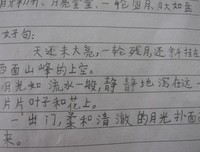 一轮明月
好句:
天还未大亮,一轮残月还斜挂在
西面山峰的上空。
月光如流水一般,静静地泻在这
片片叶子和花上。
一出门,柔和清澈的月光扑面
来。